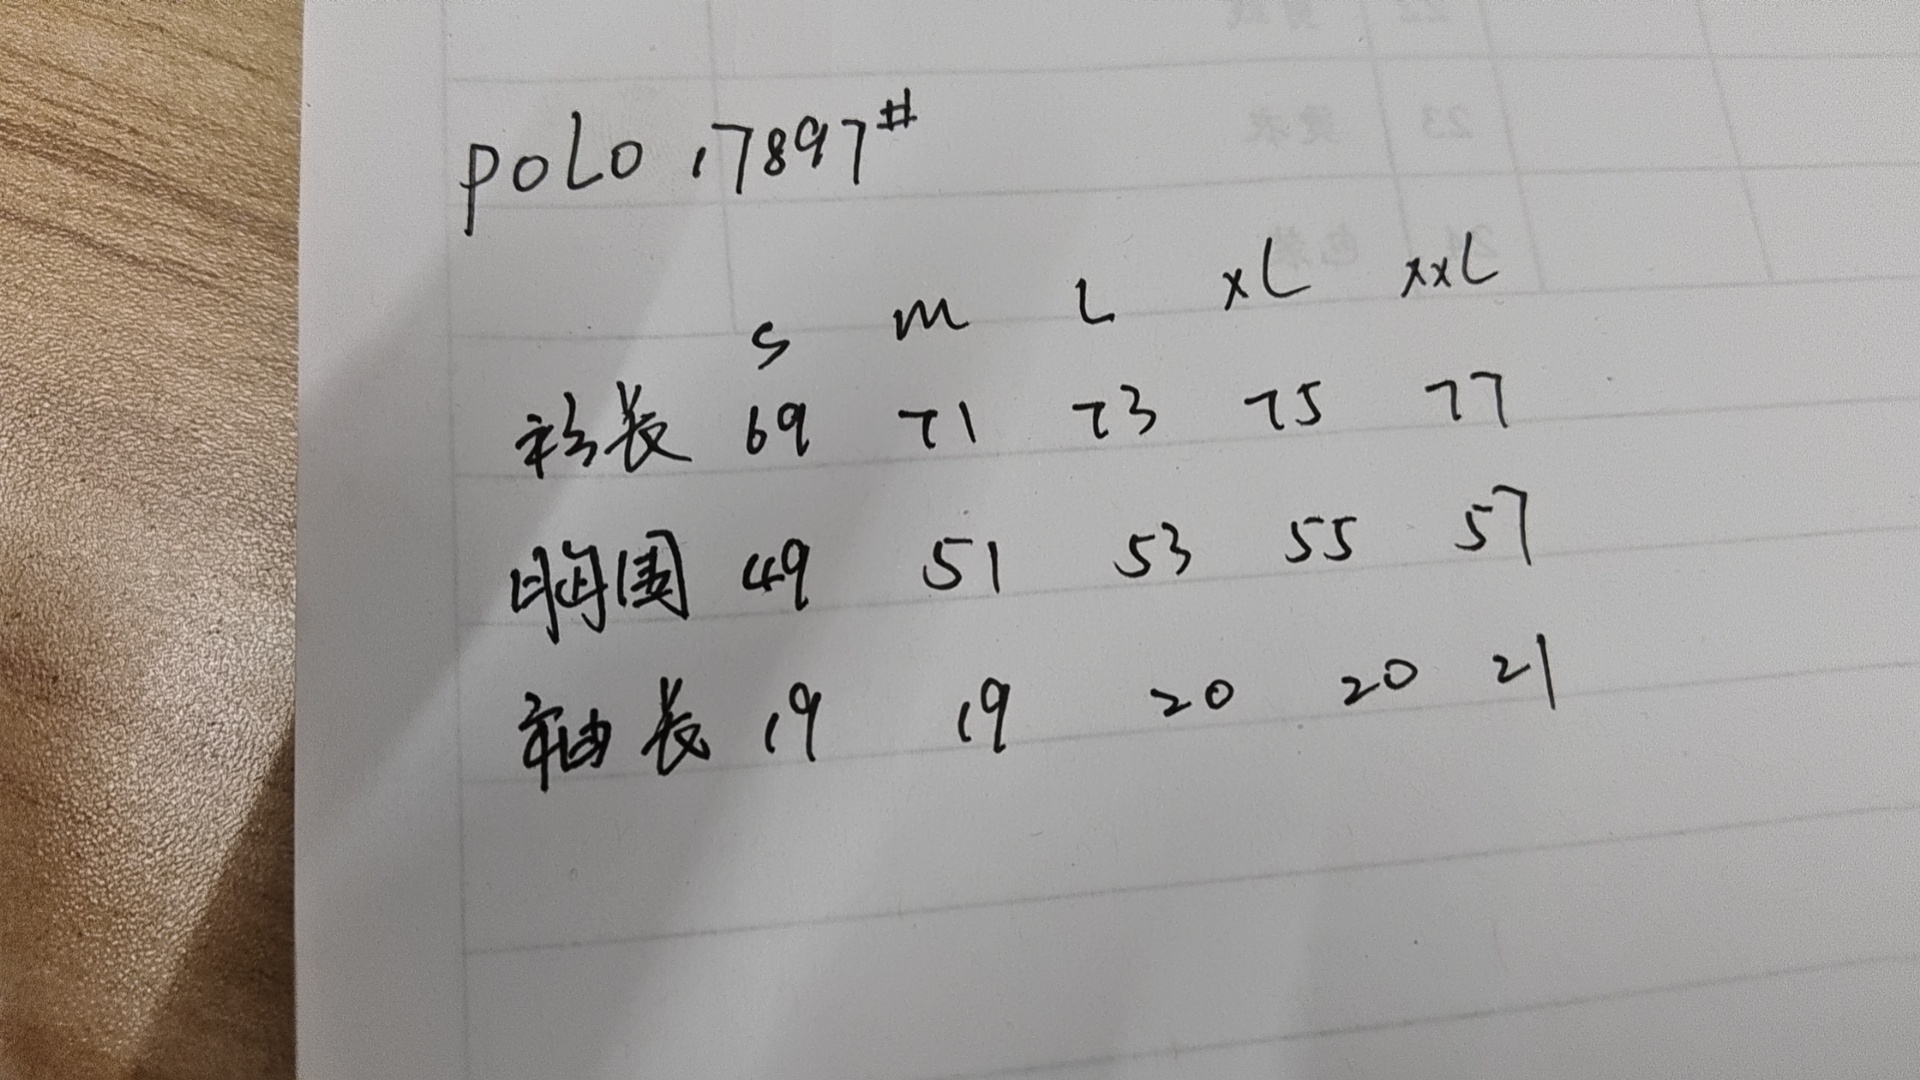 POLO 17897#
S M L XL XXL
衫长 69 71 73 75 77
胸围 49 51 53 55 57
袖长 19 19 20 20 21